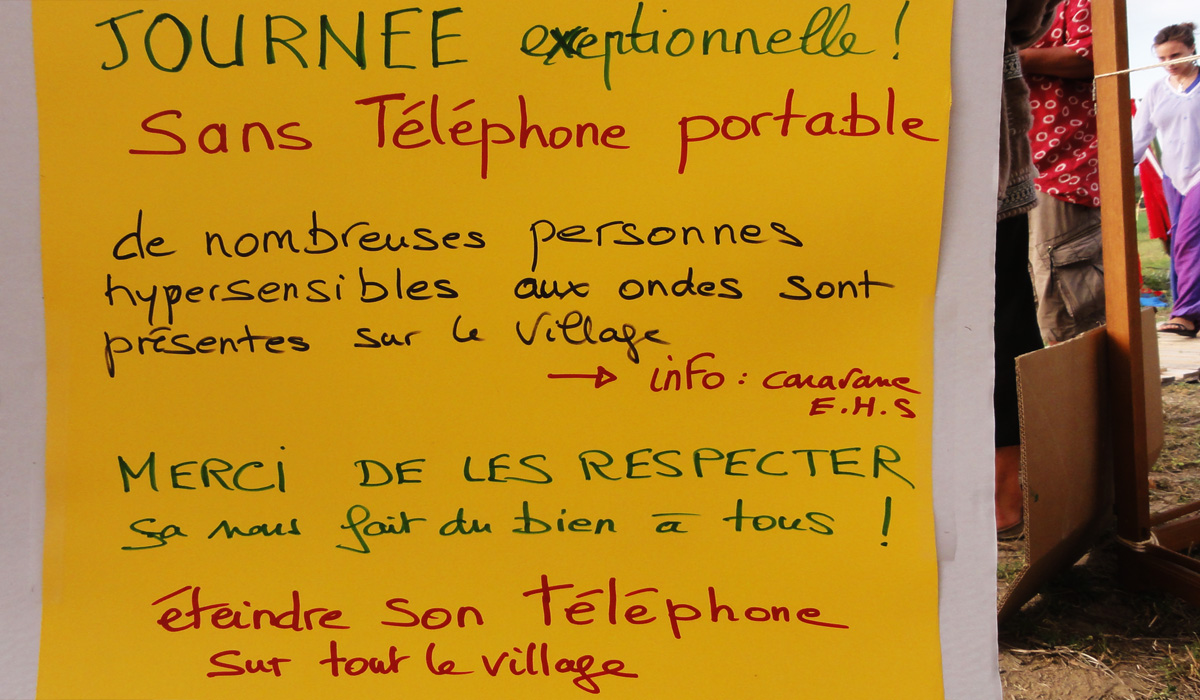 JOURNEE exeptionnelle !
Sans Téléphone portable
de nombreuses personnes
hypersensibles aux ondes sont
présentes sur le village
→ info : caravane
E.H.S
MERCi DE LES RESPECTER
sa nous fait du bien à tous !
éteindre son Téléphone
sur tout le village